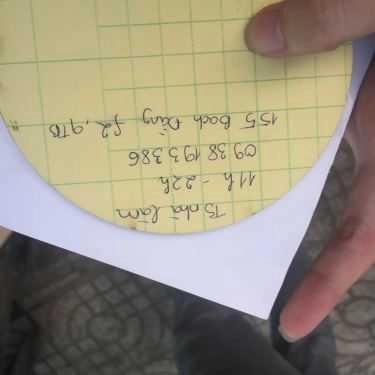 Bs nhã lam
11h - 22h
0938 193 386
155 Bạch Đằng f2, qTB